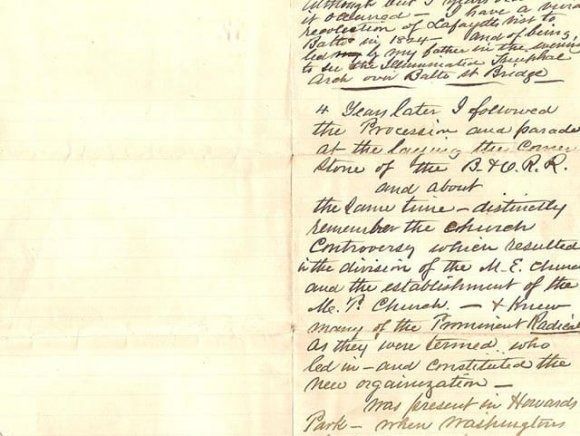 Although but 7 years old when
it occurred — I have a vivid
recollection of Lafayette visit to
Balto in 1824 — and of being
led by my father in the evening
to see the Illuminated Triumphal
Arch over Balto st Bridge
4 Years later I followed
the Procession and parade
at the Laying the Corner
Stone of the B. & O. R. R.
and about
the same time — distinctly
remember the church
Controversy which resulted
in the division of the M. E. church
and the establishment of the
Me. P. Church. — & knew
many of the Prominent Radicals
as they were termed who
led in — and constituted the
new orgainization —
was present in Howards
Park — when Washingtons